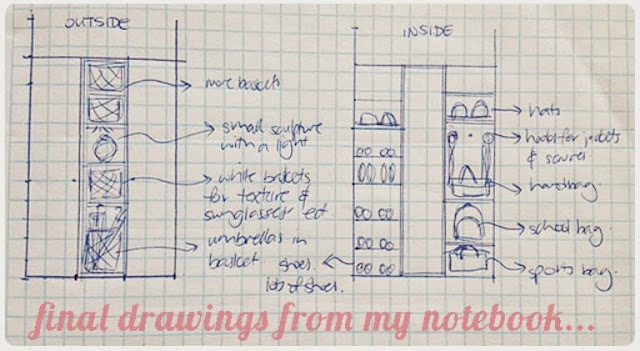 OUTSIDE
more baskets
small sculpture
with a light
white baskets
for texture &
sunglasses ect
umbrellas in
basket
INSIDE
hats
hooks for jackets
& scarves
handbag
school bag
sports bag
shoes.
lots of shoes.
final drawings from my notebook...